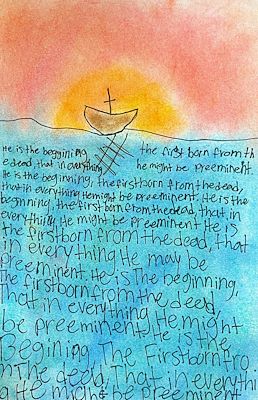 He is the beggining the first born from th
e dead, that in everything he might be preeminent.
He is the beginning, the firstborn from the dead,
that in everything He might be preeminent. He is the
beginning, the firstborn from the dead, that, in
everything He might be preeminent He is
the firstborn from the dead, that
in everything He may be
preeminent. He is The beginning,
the firstborn from the dead,
That in everything
be preeminent, He might
Begining The Firstborn fro
He is the
m the dead, That in everythi
g He might be preeminent